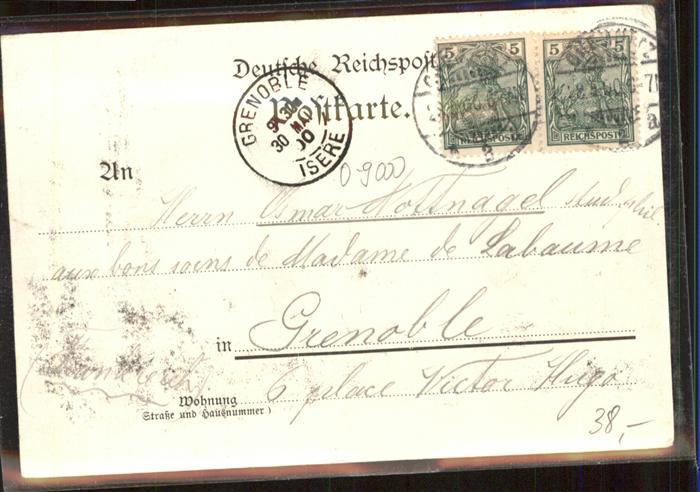 Deutsche Reichspost
Postkarte.
5 5
REICHSPOST REICHSPOST
GRENOBLE
9 30
30 MAI
00
ISERE
0-9000
An
Herrn Osmar Hottnagel stud. phil
aux bons soins de Madame de Labaume
in Grenoble
(Frankreich)
6 place Victor Hugo
Wohnung
(Straße und Hausnummer)
38,-